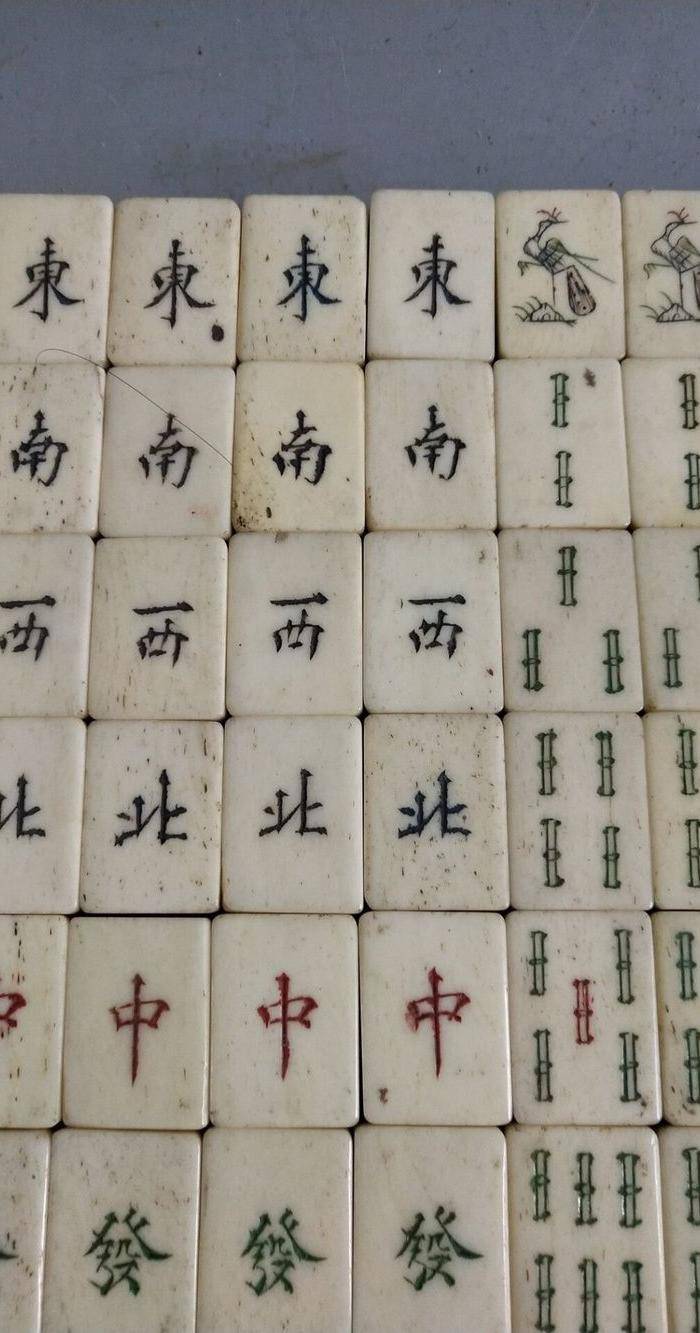 東 東 東 東
南 南 南 南
西 西 西 西
北 北 北 北
中 中 中 中
發 發 發